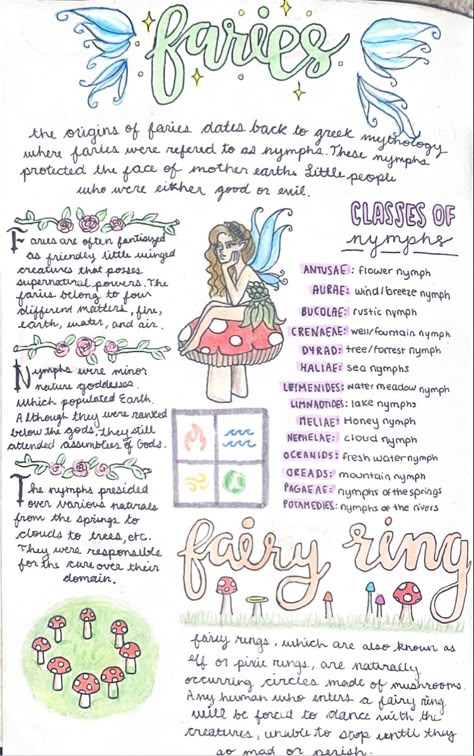 faries
the origins of faries dates back to greek mythology
where faries were refered to as nympha. These nymphs
protected the face of mother earth. Little people
who were either good or evil.
Faries are often fantisized
as friendly little winged
creatures that posses
supernatural powers. The
faries belong to four
different matters, fire,
earth, water, and air.
Nymphs were minor
nature goddesss
which populated Earth.
Although they were ranked
below the gods, They still
attended assemblies of Gods.
The nymphs presided
over various naturals
from the springs to
clouds to trees, etc.
They were responsible
for the care over their
domain.
CLASSES OF
nymphs
ANTUSAE: flower nymph
AURAE: wind/breeze nymph
BUCOLAE: rustic nymph
CRENAEAE: well/fountain nymph
DYRAD: tree/forrest nymph
HALIAE: sea nymphs
LEIMENIDES: water meadow nymph
LIMNAOTIDES: lake nymphs
MELIAE: Honey nymph
NEPHELAE: cloud nymph
OCEANIDS: fresh water nymph
OREADS: mountain nymph
PAGAEAE: nymphs of the springs
POTAMEDIES: nymphs of the rivers
fairy ring
fairy rings, which are also known as
elf or pixie rings, are naturally
occurring circles made of mushrooms.
Any human who enters a fairy ring
will be forced to dance with the
creatures, unable to stop until they
go mad or perish.